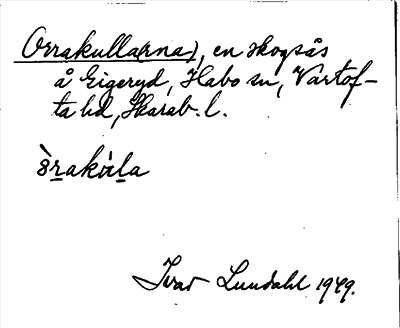 Orrakulla(rna), en skogsås
å Eigeryd, Habo sn, Vartof-
ta hd, Skarab. l.
òrakùla
Ivar Lundahl 1949.